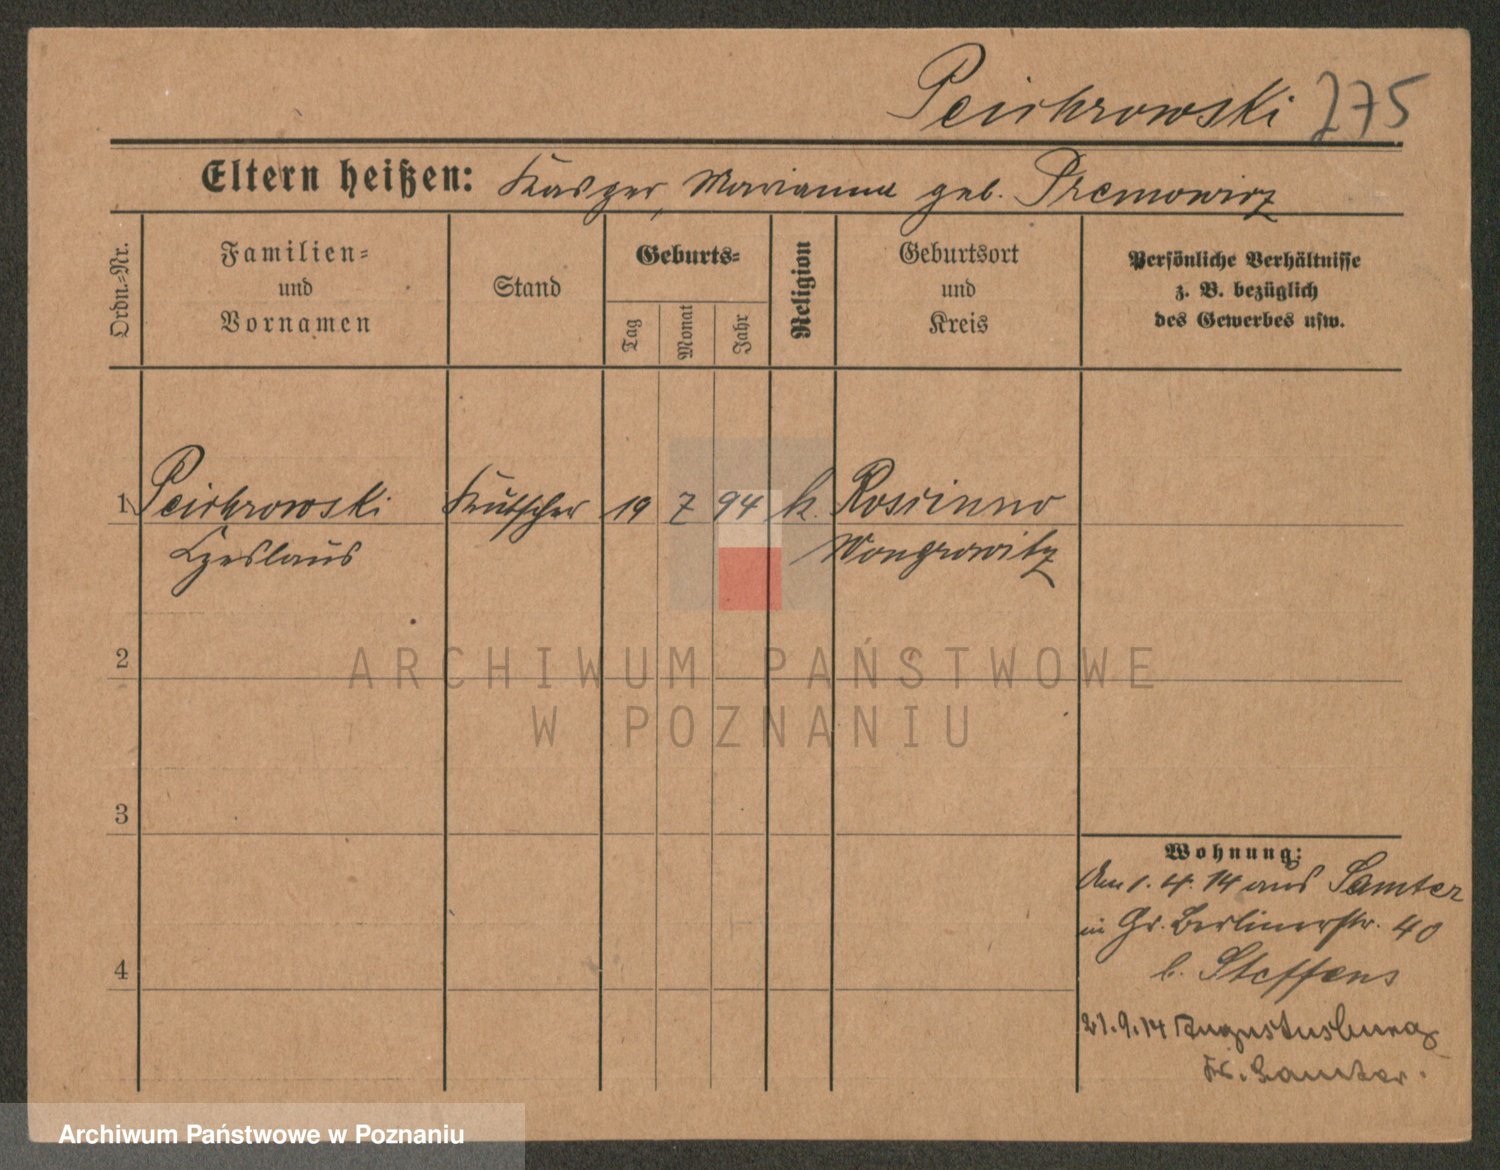 Peiskrowski 275
Eltern heißen: Kasper, Marianna geb. Premowicz
Ordn.-Nr.
Familien-
und
Vornamen
Stand
Geburts-
Tag
Monat
Jahr
Religion
Geburtsort
und
Kreis
Persönliche Verhältnisse
z. B. bezüglich
des Gewerbes usw.
1 Peiskrowski Kutscher 19 7 94 k.
Czeslaus Wongrowitz
ARCHIWUM PAŃSTWOWE
W POZNANIU
2
3
4
Wohnung:
Am 1. 4. 14 aus Samter
in Gr. Berlinerstr. 40
b. Steffens
21.9.14 Augustusburg
Kr. Samter.
Archiwum Państwowe w Poznaniu